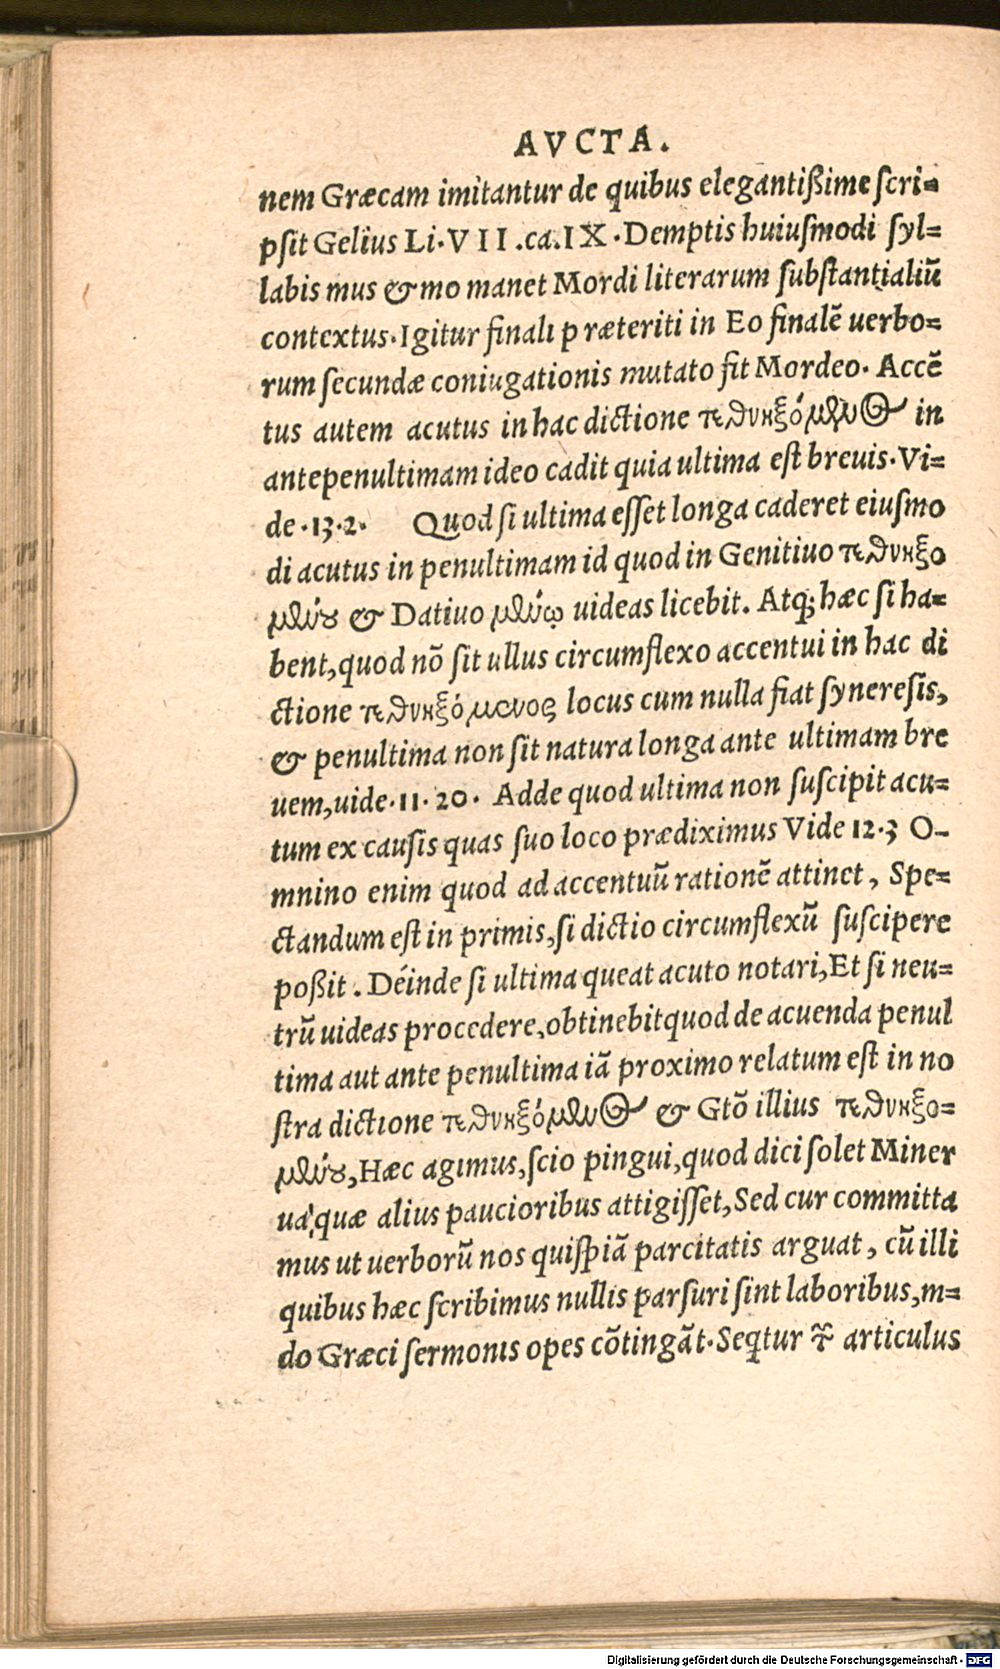 AVCTA.
nem Græcam imitantur de quibus elegantißime ſcri=
pſit Gelius Li.VII.ca.IX.Demptis huiuſmodi ſyl=
labis mus & mo manet Mordi literarum ſubſtantialiũ
contextus.Igitur finali præteriti in Eo finalẽ uerbo=
rum ſecundæ coniugationis mutato fit Mordeo. Accẽ
tus autem acutus in hac dictione τεθνηξόμενος in
antepenultimam ideo cadit quia ultima eſt breuis.Vi=
de .13.2. Quod ſi ultima eſſet longa caderet eiuſmo
di acutus in penultimam id quod in Genitiuo τεθνηξο
μένου & Datiuo μένῳ uideas licebit. Atq; hæc ſi ha=
bent,quod nõ ſit ullus circumflexo accentui in hac di
ctione τεθνηξόμενος locus cum nulla fiat ſyneresis,
& penultima non ſit natura longa ante ultimam bre
uem,uide.11.20. Adde quod ultima non ſuſcipit acu=
tum ex cauſis quas ſuo loco prædiximus Vide 12.3 O-
mnino enim quod ad accentuũ rationẽ attinet, Spe=
ctandum eſt in primis,ſi dictio circumflexũ ſuſcipere
poßit. Déinde ſi ultima queat acuto notari,Et ſi neu=
trũ uideas procedere,obtinebit quod de acuenda penul
tima aut ante penultima iã proximo relatum eſt in no
ſtra dictione τεθνηξόμενος & Gtõ illius τεθνηξο=
μένου,Hæc agimus,ſcio pingui,quod dici ſolet Miner
ua,quæ alius paucioribus attigiſſet,Sed cur committa
mus ut uerborũ nos quiſpiã parcitatis arguat, cũ illi
quibus hæc ſcribimus nullis parſuri ſint laboribus,m=
do Græci ſermonis opes cõtingãt.Seqtur articulus
Digitalisierung gefördert durch die Deutsche Forschungsgemeinschaft - DFG